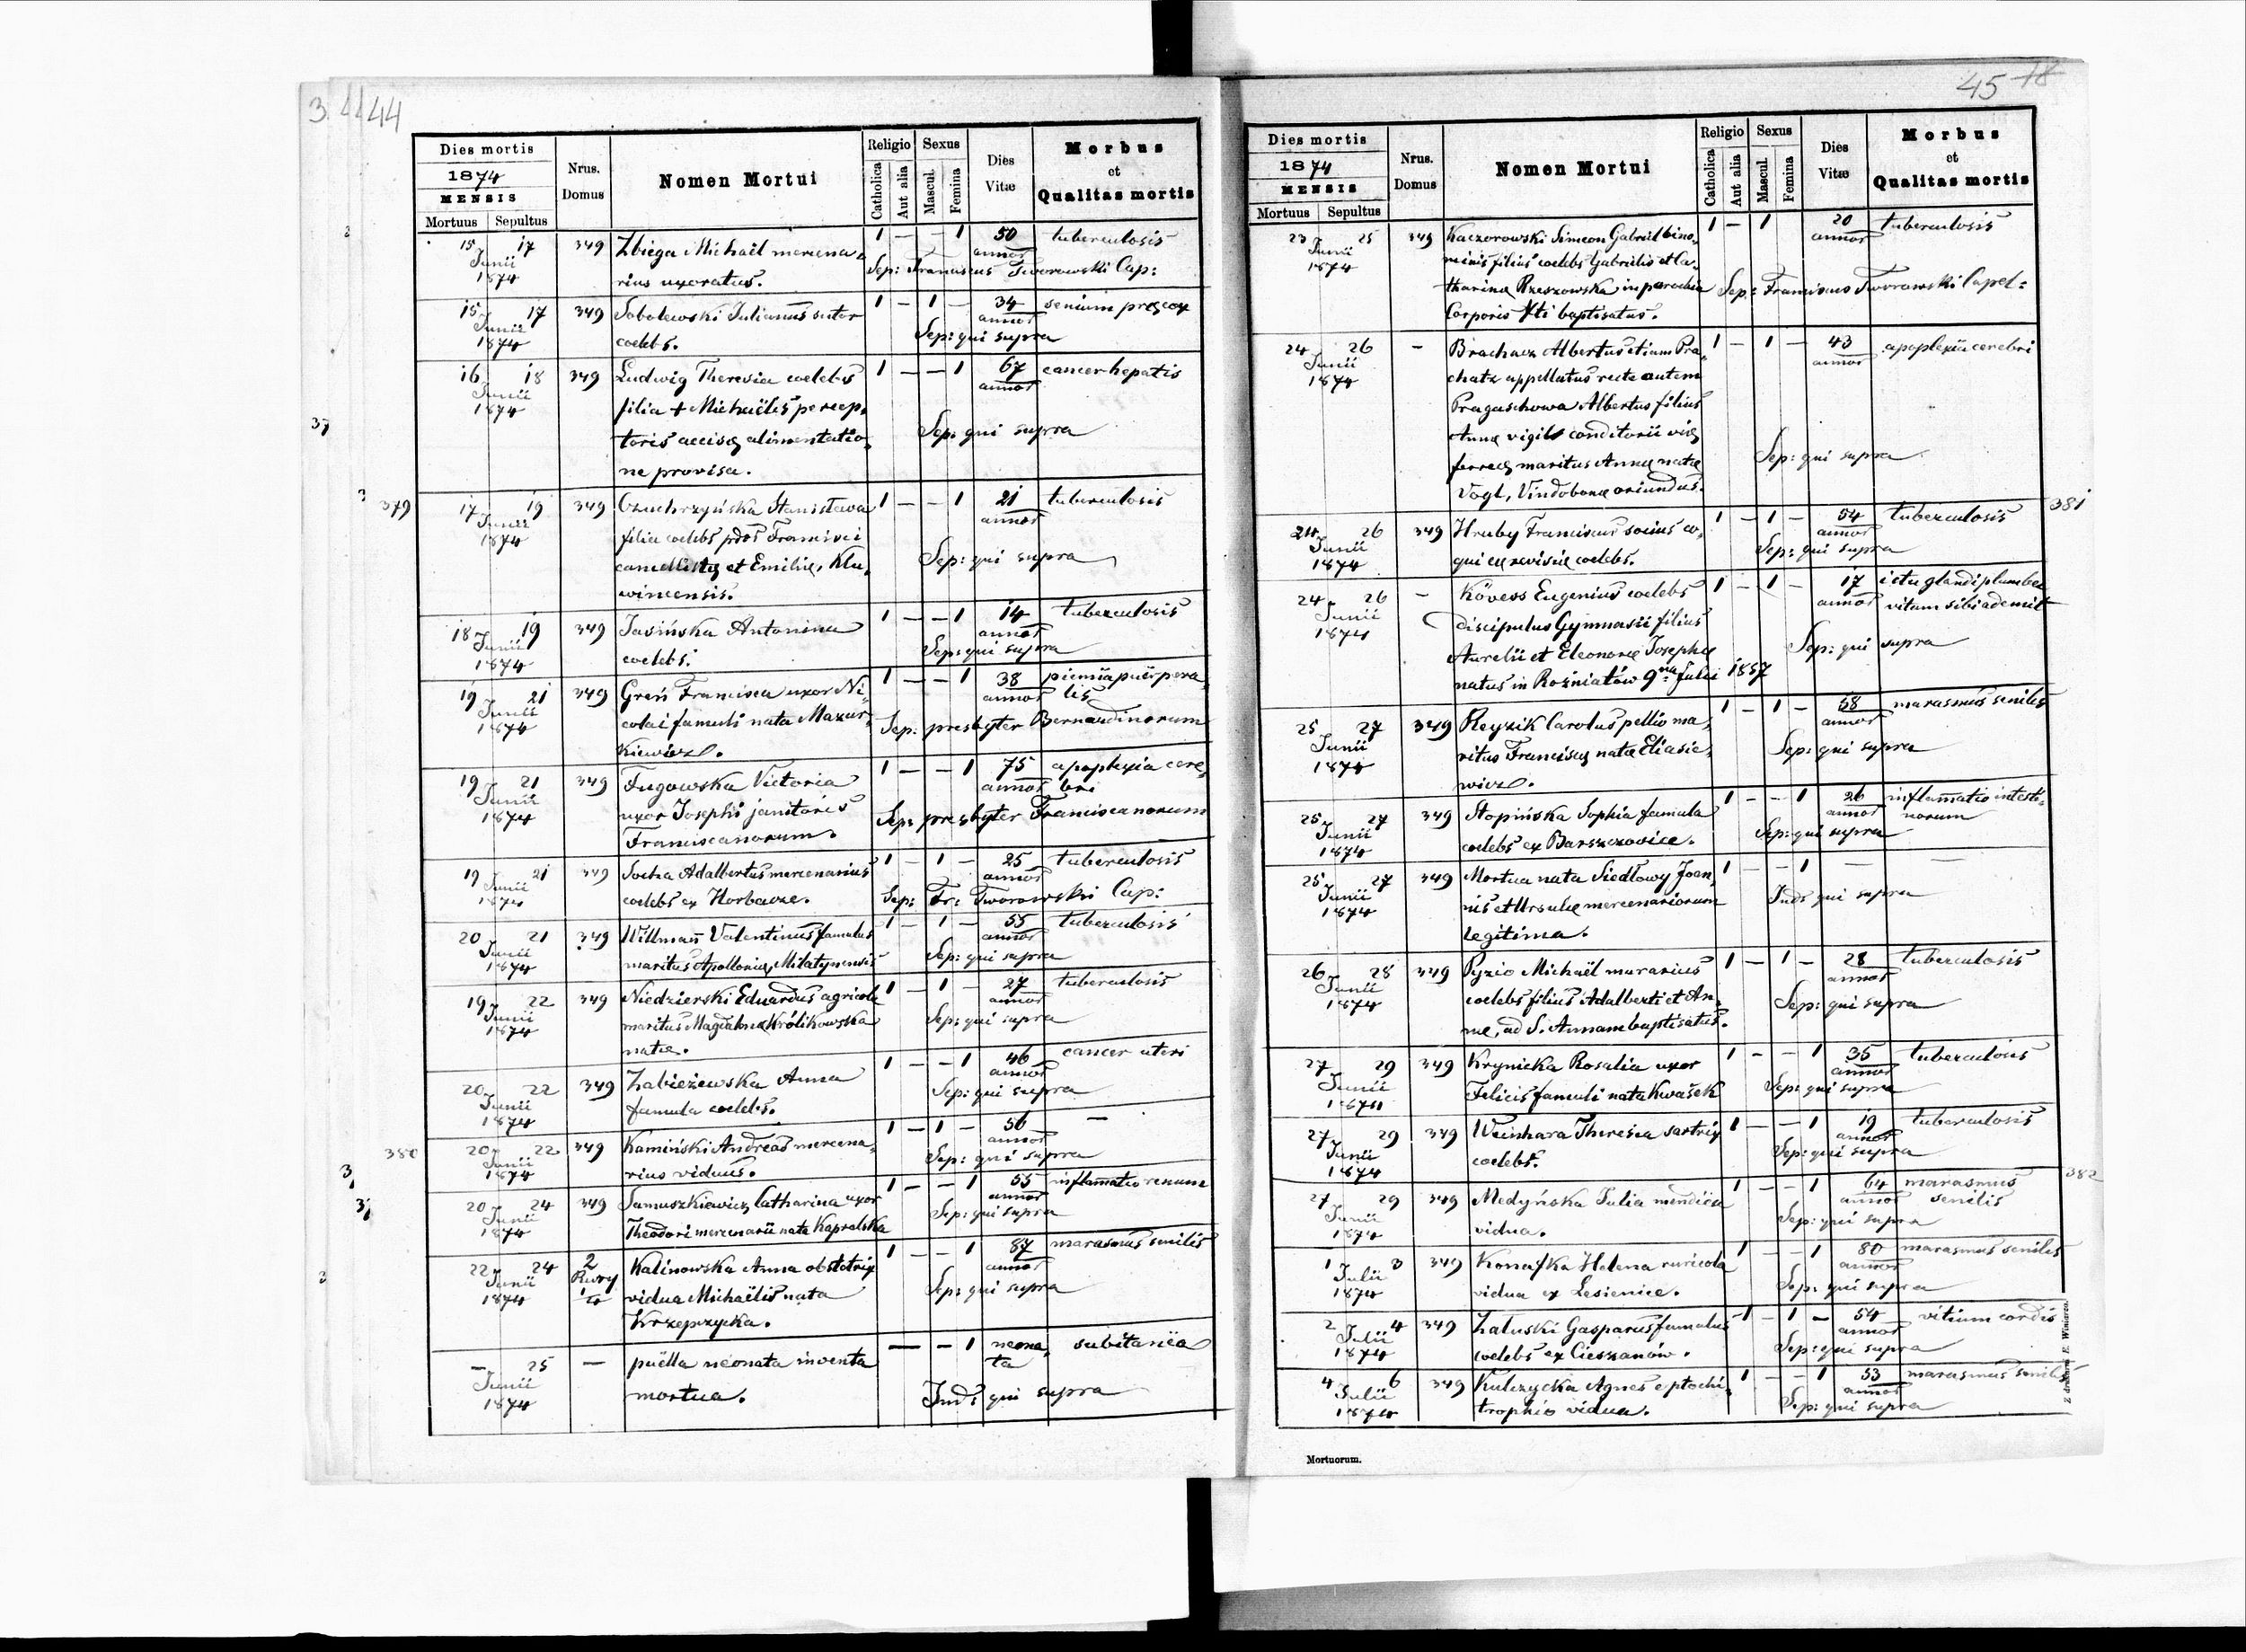 3 44
Dies mortis
1874
MENSIS
Mortuus Sepultus
Nrus. Domus
Nomen Mortui
Religio
Catholica Aut alia
Sexus
Mascul. Femina
Dies Vitæ
Morbus
et
Qualitas mortis
15 17 349 Zbiega Michaël mercena, 1 — — 1 50 tuberculosis
Junii annor
1874 rius uxoratus. Sep: Franciscus Tworowski Cap:
15 17 349 Sobolewski Julianus sutor 1 — 1 — 34 senium precox
Junii annor
1874 coelebs. Sep: qui supra
16 18 349 Ludwig Theresia coelebs 1 — — 1 67 cancer hepatis
Junii annor
1874 filia + Michaëlis percep,
37
toris accisę alimentatio, Sep: qui supra
ne provisa.
379 17 19 349 Czuchrzyńska Stanisława 1 — — 1 21 tuberculosis
Junii annor
1874 filia coelebs Francisci
et Emilię, Klu, Sep: qui supra
wincensis.
18 19 349 Jasińska Antonina 1 — — 1 14 tuberculosis
Junii annor
1874 coelebs. Sep: qui supra
19 21 349 Greń Francisca uxor Ni, 1 — — 1 38 piemia puërpera,
Junii annor lis
1874 colai famuli nata Mazur, Sep: presbyter Bernardinorum
kiewicz.
19 21 349 Fugowska Victoria 1 — — 1 75 apoplexia cere,
Junii annor bri
1874 uxor Josephi janitoris Sep: presbyter Franciscanorum
Franciscanorum.
19 21 349 Socha Adalbertus mercenarius 1 — 1 — 25 tuberculosis
Junii annor
1874 coelebs ex Horbacze. Sep: Fr: Tworowski Cap:
20 21 349 Willman Valentinus famulus 1 — 1 — 55 tuberculosis
Junii annor
1874 maritus Apollonię, Milatynensis Sep: qui supra
19 22 349 Niedzierski Eduardus agricola 1 — 1 — 27 tuberculosis
Junii annor
1874 maritus Magdalenæ Królikowska Sep: qui supra
natæ.
20 22 349 Zabieżewska Anna 1 — — 1 46 cancer uteri
Junii annor
1874 famula coelebs. Sep: qui supra
380 20 22 349 Kamiński Andreas mercena, 1 — 1 — 56 —
Junii annor
1874 rius viduus. Sep: qui supra
20 24 349 Samuszkiewicz Catharina uxor 1 — — 1 55 inflamatio renum
Junii annor
1874 Theodori mercenarii nata Kapralska Sep: qui supra
22 24 2 Kalinowska Anna obstetrix 1 — — 1 87 marasmus senilis
Junii Rury annor
1874 vidua Michaëlis nata Sep: qui supra
Krzeprzycka.
— 25 — puëlla neonata inventa — — 1 neona, subitanëa
Junii ta
1874 mortua. Ind: qui supra
45 18
Dies mortis
1874
MENSIS
Mortuus Sepultus
Nrus. Domus
Nomen Mortui
Religio
Catholica Aut alia
Sexus
Mascul. Femina
Dies Vitæ
Morbus
et
Qualitas mortis
23 25 349 Kaczorowski Simeon Gabriël bino, 1 — 1 20 tuberculosis
Junii annor
1874 minis filius coelebs Gabriëlis et Ca,
tharinæ Rzeszowska in parochia Sep: Franciscus Tworowski Capel:
Corporis Xti baptisatus.
24 26 — Brachacz Albertus etiam Pra, 1 — 1 — 43 apoplexia cerebri
Junii annor
1874 chatz appellatus recte autem
Pragaschowa Albertus filius
Annę vigil conditorii vię
ferreę maritus Annæ natæ Sep: qui supra
Vogl, Vindobonæ oriundus.
381
24 26 349 Hruby Franciscus socius co, 1 — 1 — 54 tuberculosis
Junii annor
1874 qui cerevisię coelebs. Sep: qui supra
24 26 — Kövess Eugenius coelebs 1 — 1 — 17 ictu glandi plumbea
Junii annor vitam sibi ademit
1874 discipulus Gymnasii filius
Aurelii et Eleonoræ Josephæ Sep: qui supra
natus in Rożniatów 9na Julii 1857
25 27 349 Reyzik Carolus pellio ma, 1 — 1 — 58 marasmus senilis
Junii annor
1874 ritus Franciscę natæ Eliasie, Sep: qui supra
wicz.
25 27 349 Stopińska Sophia famula 1 — — 1 26 inflamatio intesti,
Junii annor norum
1874 coelebs ex Barszczowice. Sep: qui supra
25 27 349 Mortua nata Siedlowy Joan, 1 — — 1 — —
Junii
1874 nis et Ursulę mercenariorum Ind: qui supra
legitima.
26 28 349 Pyzio Michaël murarius 1 — 1 — 28 tuberculosis
Junii annor
1874 coelebs filius Adalberti et An, Sep: qui supra
næ, ad S. Annam baptisatus.
27 29 349 Krynicka Rosalia uxor 1 — — 1 35 tuberculosis
Junii annor
1874 Felicis famuli nata Kwaśek Sep: qui supra
27 29 349 Weinhara Theresia sartrix 1 — — 1 19 tuberculosis
Junii annor
1874 coelebs. Sep: qui supra
382
27 29 349 Medyńska Julia mendica 1 — — 1 64 marasmus
Junii annor senilis
1874 vidua. Sep: qui supra
1 3 349 Konafka Helena ruricola 1 — — 1 80 marasmus senilis
Julii annor
1874 vidua ex Lesienice. Sep: qui supra
2 4 349 Załuski Gasparus famulus 1 — 1 — 54 vitium cordis
Julii annor
1874 coelebs ex Cieszanów. Sep: qui supra
4 6 349 Kulczycka Agnes e ptochi, 1 — — 1 53 marasmus senilis
Julii annor
1874 trophio vidua. Sep: qui supra
Z drukarni E. Winiarza.
Mortuorum.